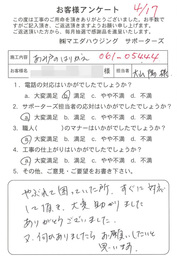 お客様アンケート 4/17
この度は工事のご用命を頂きありがとうございました。お手数で
すがご記入頂き、ご返送頂きますようお願い申し上げます。
ご返送頂いた方から、毎月抽選で感謝品を進呈いたします。
㈱マエダハウジング サポーターズ
施工内容 061-05444
お客様名 様 担当
1. 電話の対応はいかがでしたでしょうか?
a. 大変満足 b. 満足 c. やや不満 d. 不満
2. サポーターズ担当者の対応はいかがでしたでしょうか?
a. 大変満足 b. 満足 c. やや不満 d. 不満
3. 職人( )のマナーはいかがでしたでしょうか?
a. 大変満足 b. 満足 c. やや不満 d. 不満
4. 工事の仕上がりはいかがでしたでしょうか?
a. 大変満足 b. 満足 c. やや不満 d. 不満
5. その他、ご意見・ご要望をお書き下さい。
やぶれて困っていた所、すぐに対応
して頂き、大変助かりました
ありがとうございました。
又、何かありましたらお願いしたいと
思います。